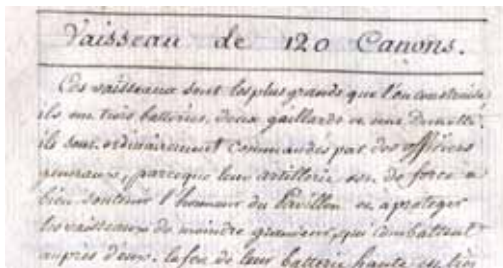 Vaisseau de 120 Canons.
Ces vaisseaux sont les plus grands que l'on construise
ils ont trois batteries, deux gaillards et une Dunette
ils sont ordinairement commandés par des officiers
generaux, parceque leur artillerie est de force a
bien soutenir l'honneur du Pavillon et a proteger
les vaisseaux de moindre grandeur, qui combattent
auprès d'eux. le feu de leur batterie haute est très